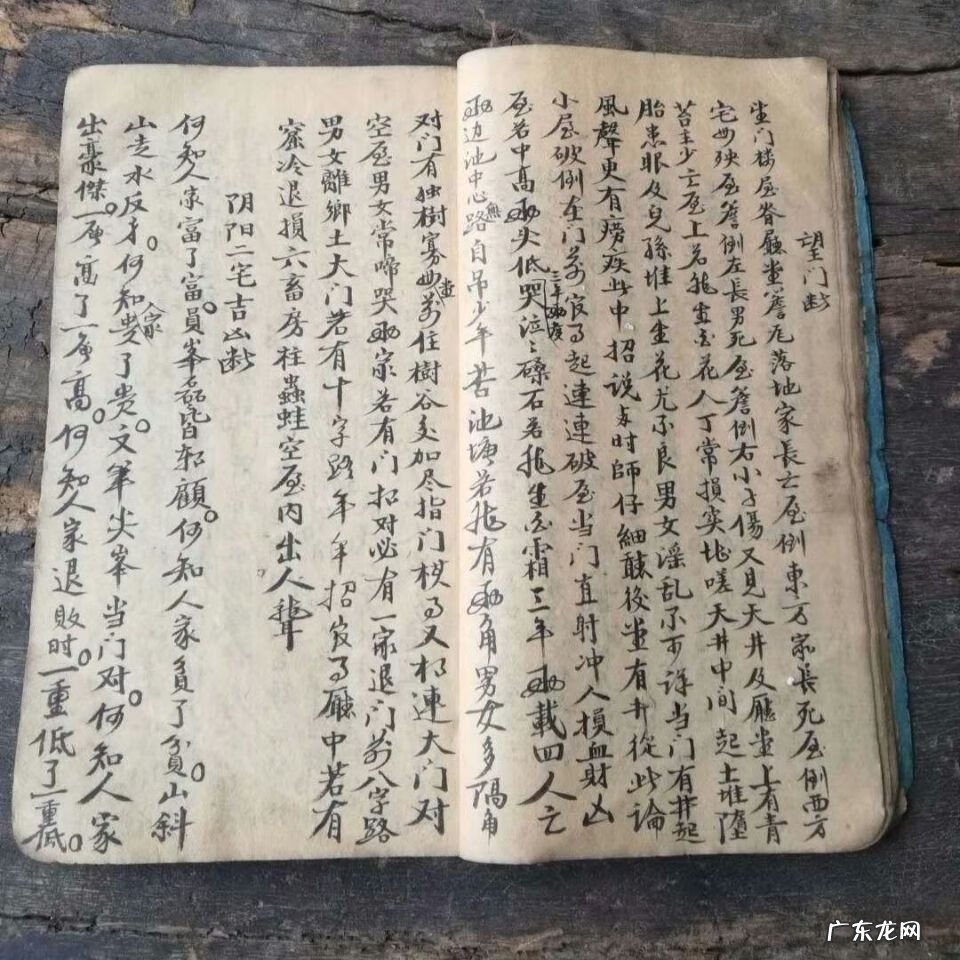 望门断
坐门楼屋脊厅堂簷尾落地家長亡屋倒東方家長死屋倒西方
宅母殃屋簷倒左長男死屋簷倒右小子傷又見天井及廳堂上有青
苔主少亡屋上若花人丁常損天井中间起土堆墮
胎患眼及兒孫堆上生花尤不良男女淫乱不可详当门有井起
風聲更有痨疾此中招说与时師仔細聽後堂有井從此論
小屋破倒在门前官司起連連破屋当门直射冲人損血財凶
屋若中高两头低哭泣々磉石若生白霜三年两载四人亡
两边池中心路自吊少年苦池塘若有两角男女多隔角
对门有独樹寡母堂前住樹谷交加尽指门杖又相連大门对
空屋男女常啼哭两家若有门相对必有一家退门前八字路
男女離鄉土大门若有十字路年年招官司廳中若有
寒冷退損六畜房柱蟲蛀空屋内出人聋
阴阳二宅吉凶断
何知人家富了富。員峯磊磊皆朝顧。何知人家貧了貧。山斜
山走水反身。何知人家贵了贵。文筆尖峯当门对。何知人家
出豪傑。一層高了一層高。何知人家退敗时。一重低了一重低。
广东龙网